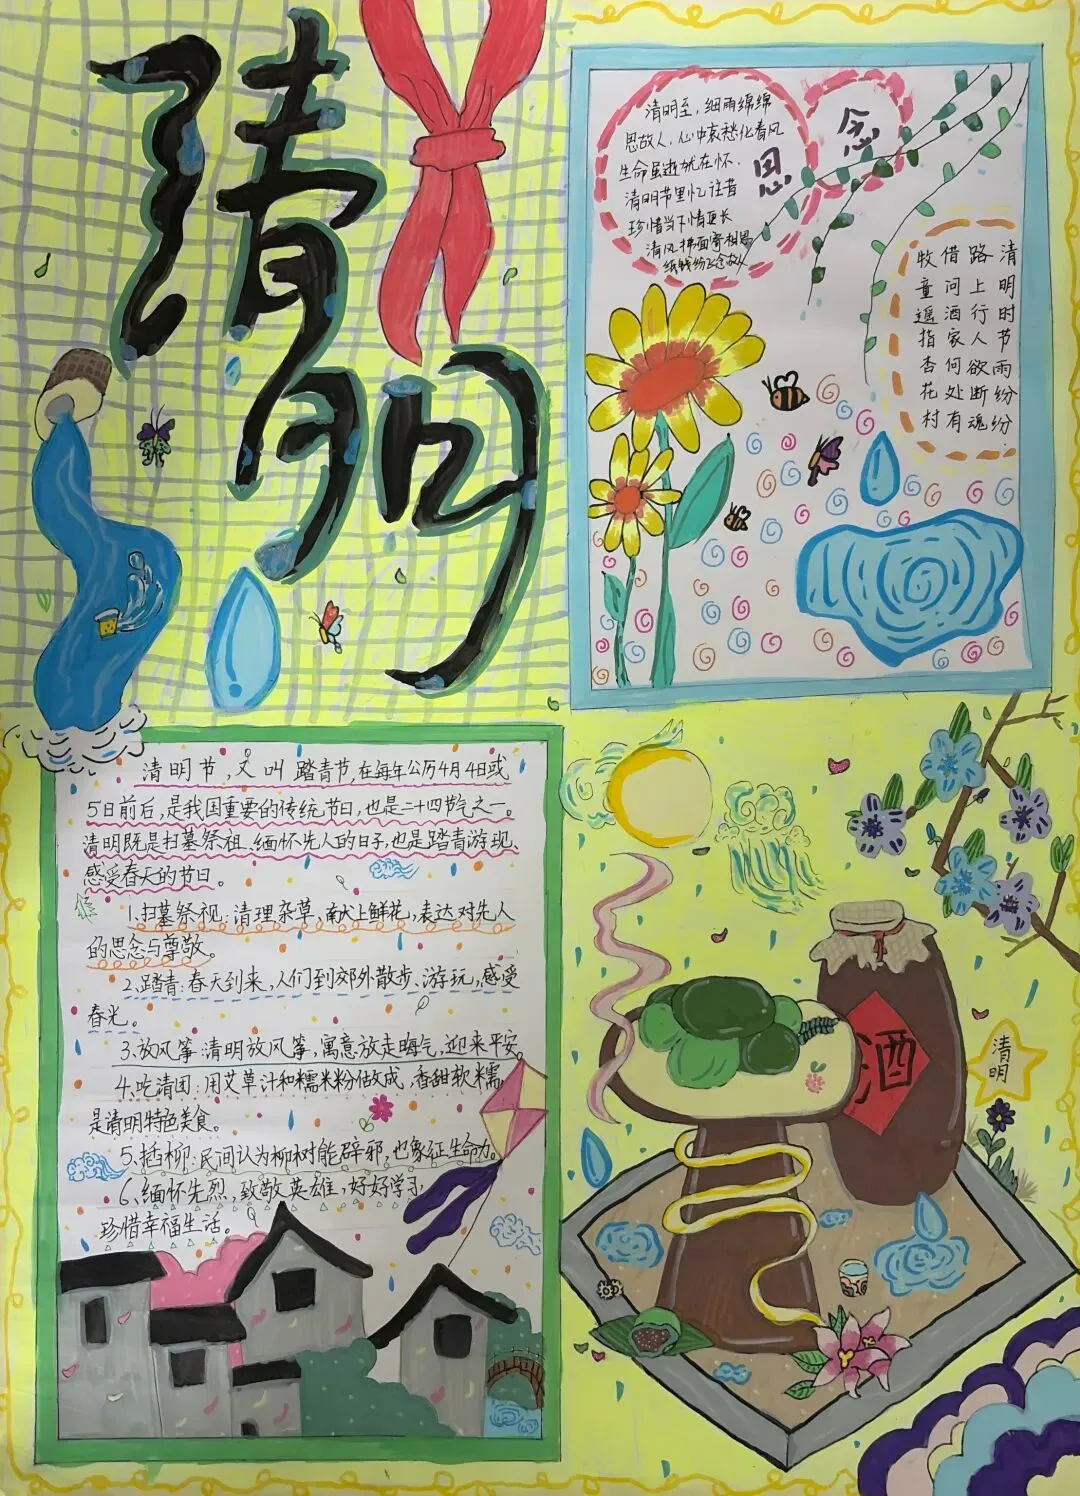 清明
清明至，细雨绵绵
思故人，心中哀愁化春风
生命虽逝犹在怀．
清明节里忆往昔
珍惜当下情更长
清风拂面寄相思
纸钱纷飞念故人
思念
清明时节雨纷纷
路上行人欲断魂
借问酒家何处有
牧童遥指杏花村
清明节，又叫踏青节，在每年公历4月4日或
5日前后，是我国重要的传统节日，也是二十四节气之一。
清明既是扫墓祭祖、缅怀先人的日子，也是踏青游现、
感受春天的节日。
1.扫墓祭视：清理杂草，献上鲜花，表达对先人
的思念与尊敬。
2、踏青：春天到来，人们到郊外散步、游玩，感受
春光。
3、放风筝：清明放风筝，寓意放走晦气，迎来平安。
4、吃清团：用艾草汁和糯米粉做成，香甜软糯，
是清明特色美食。
5、插柳：民间认为柳树能辟邪，也象征生命力。
6、缅怀先烈，致敬英雄，好好学习，
珍惜幸福生活。
酒
清明